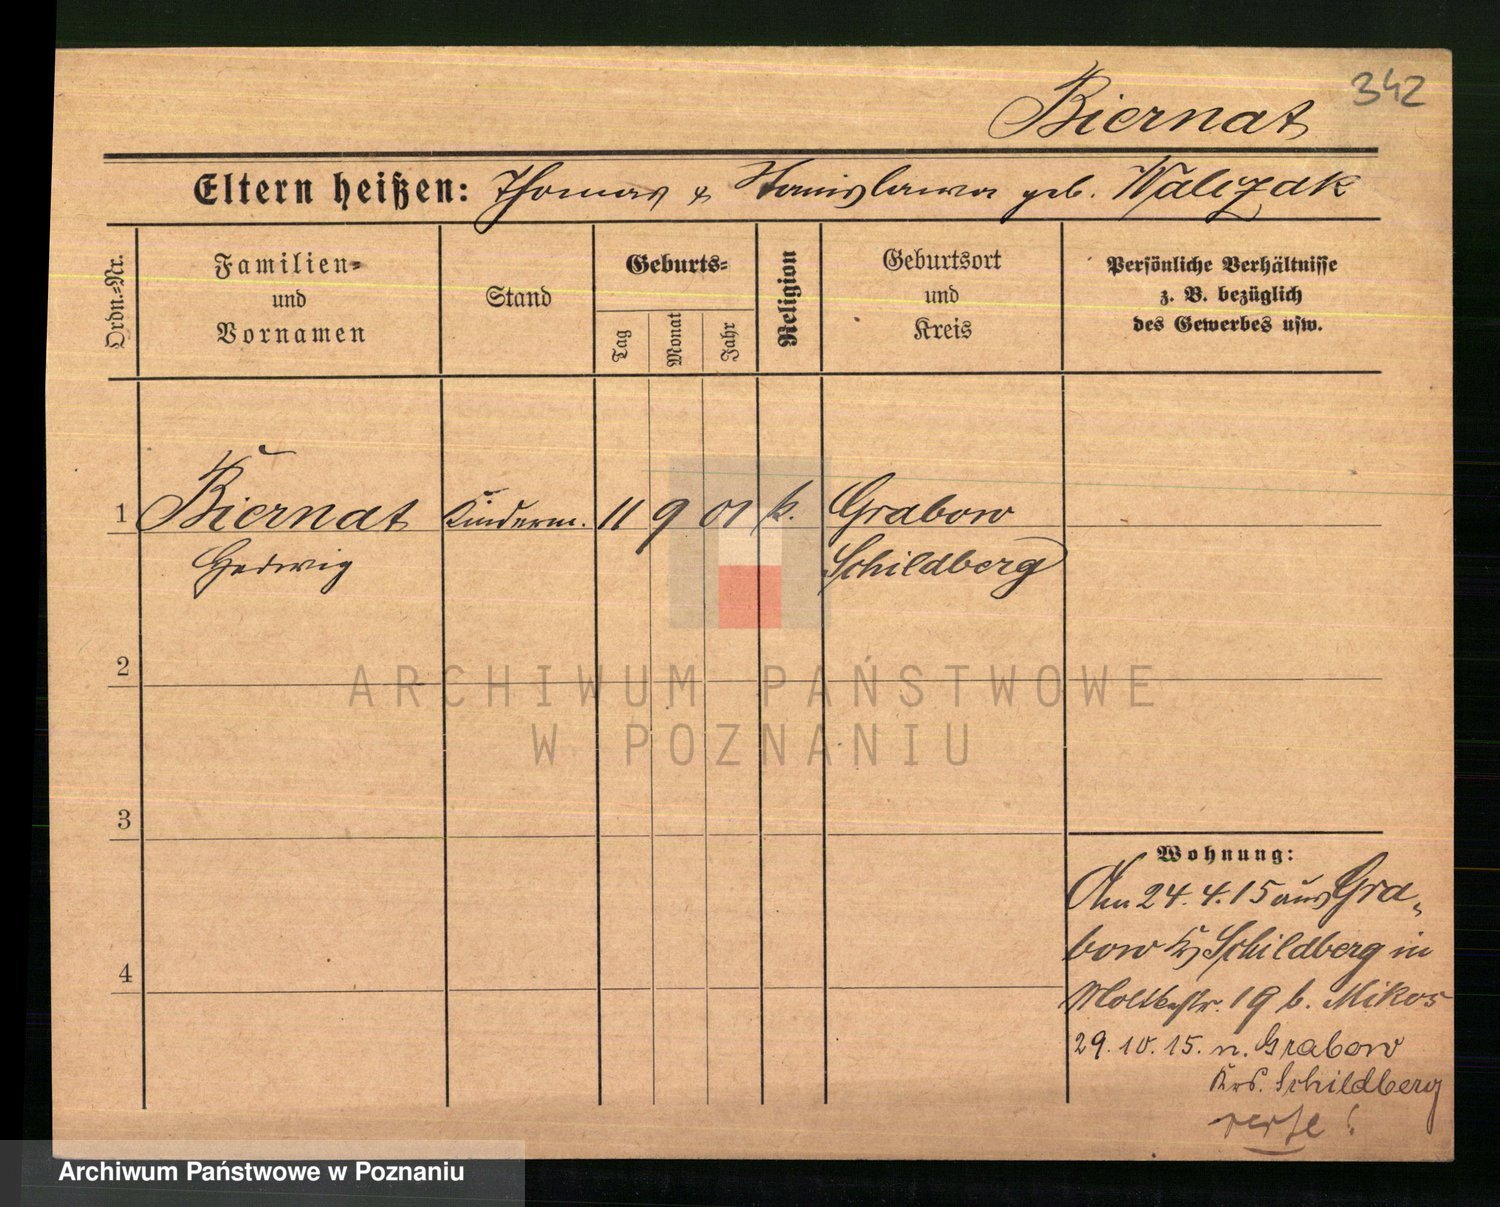 342
Biernat
Eltern heißen: Thomas & Stanislawa geb. Walczak
Ordn.-Nr.
Familien-
und
Vornamen
Stand
Geburts-
Tag
Monat
Jahr
Religion
Geburtsort
und
Kreis
Persönliche Verhältnisse
z. B. bezüglich
des Gewerbes usw.
1 Biernat Kinderm. 11 9 01 k. Grabow
Hedwig Schildberg
2
ARCHIWUM PAŃSTWOWE
W POZNANIU
3
Wohnung:
Am 24.4.15 aus Gra-
bow Kr. Schildberg in
Moltkestr. 19 b. Mikos
4
29.10.15. n. Grabow
Krs. Schildberg
verte!
Archiwum Państwowe w Poznaniu